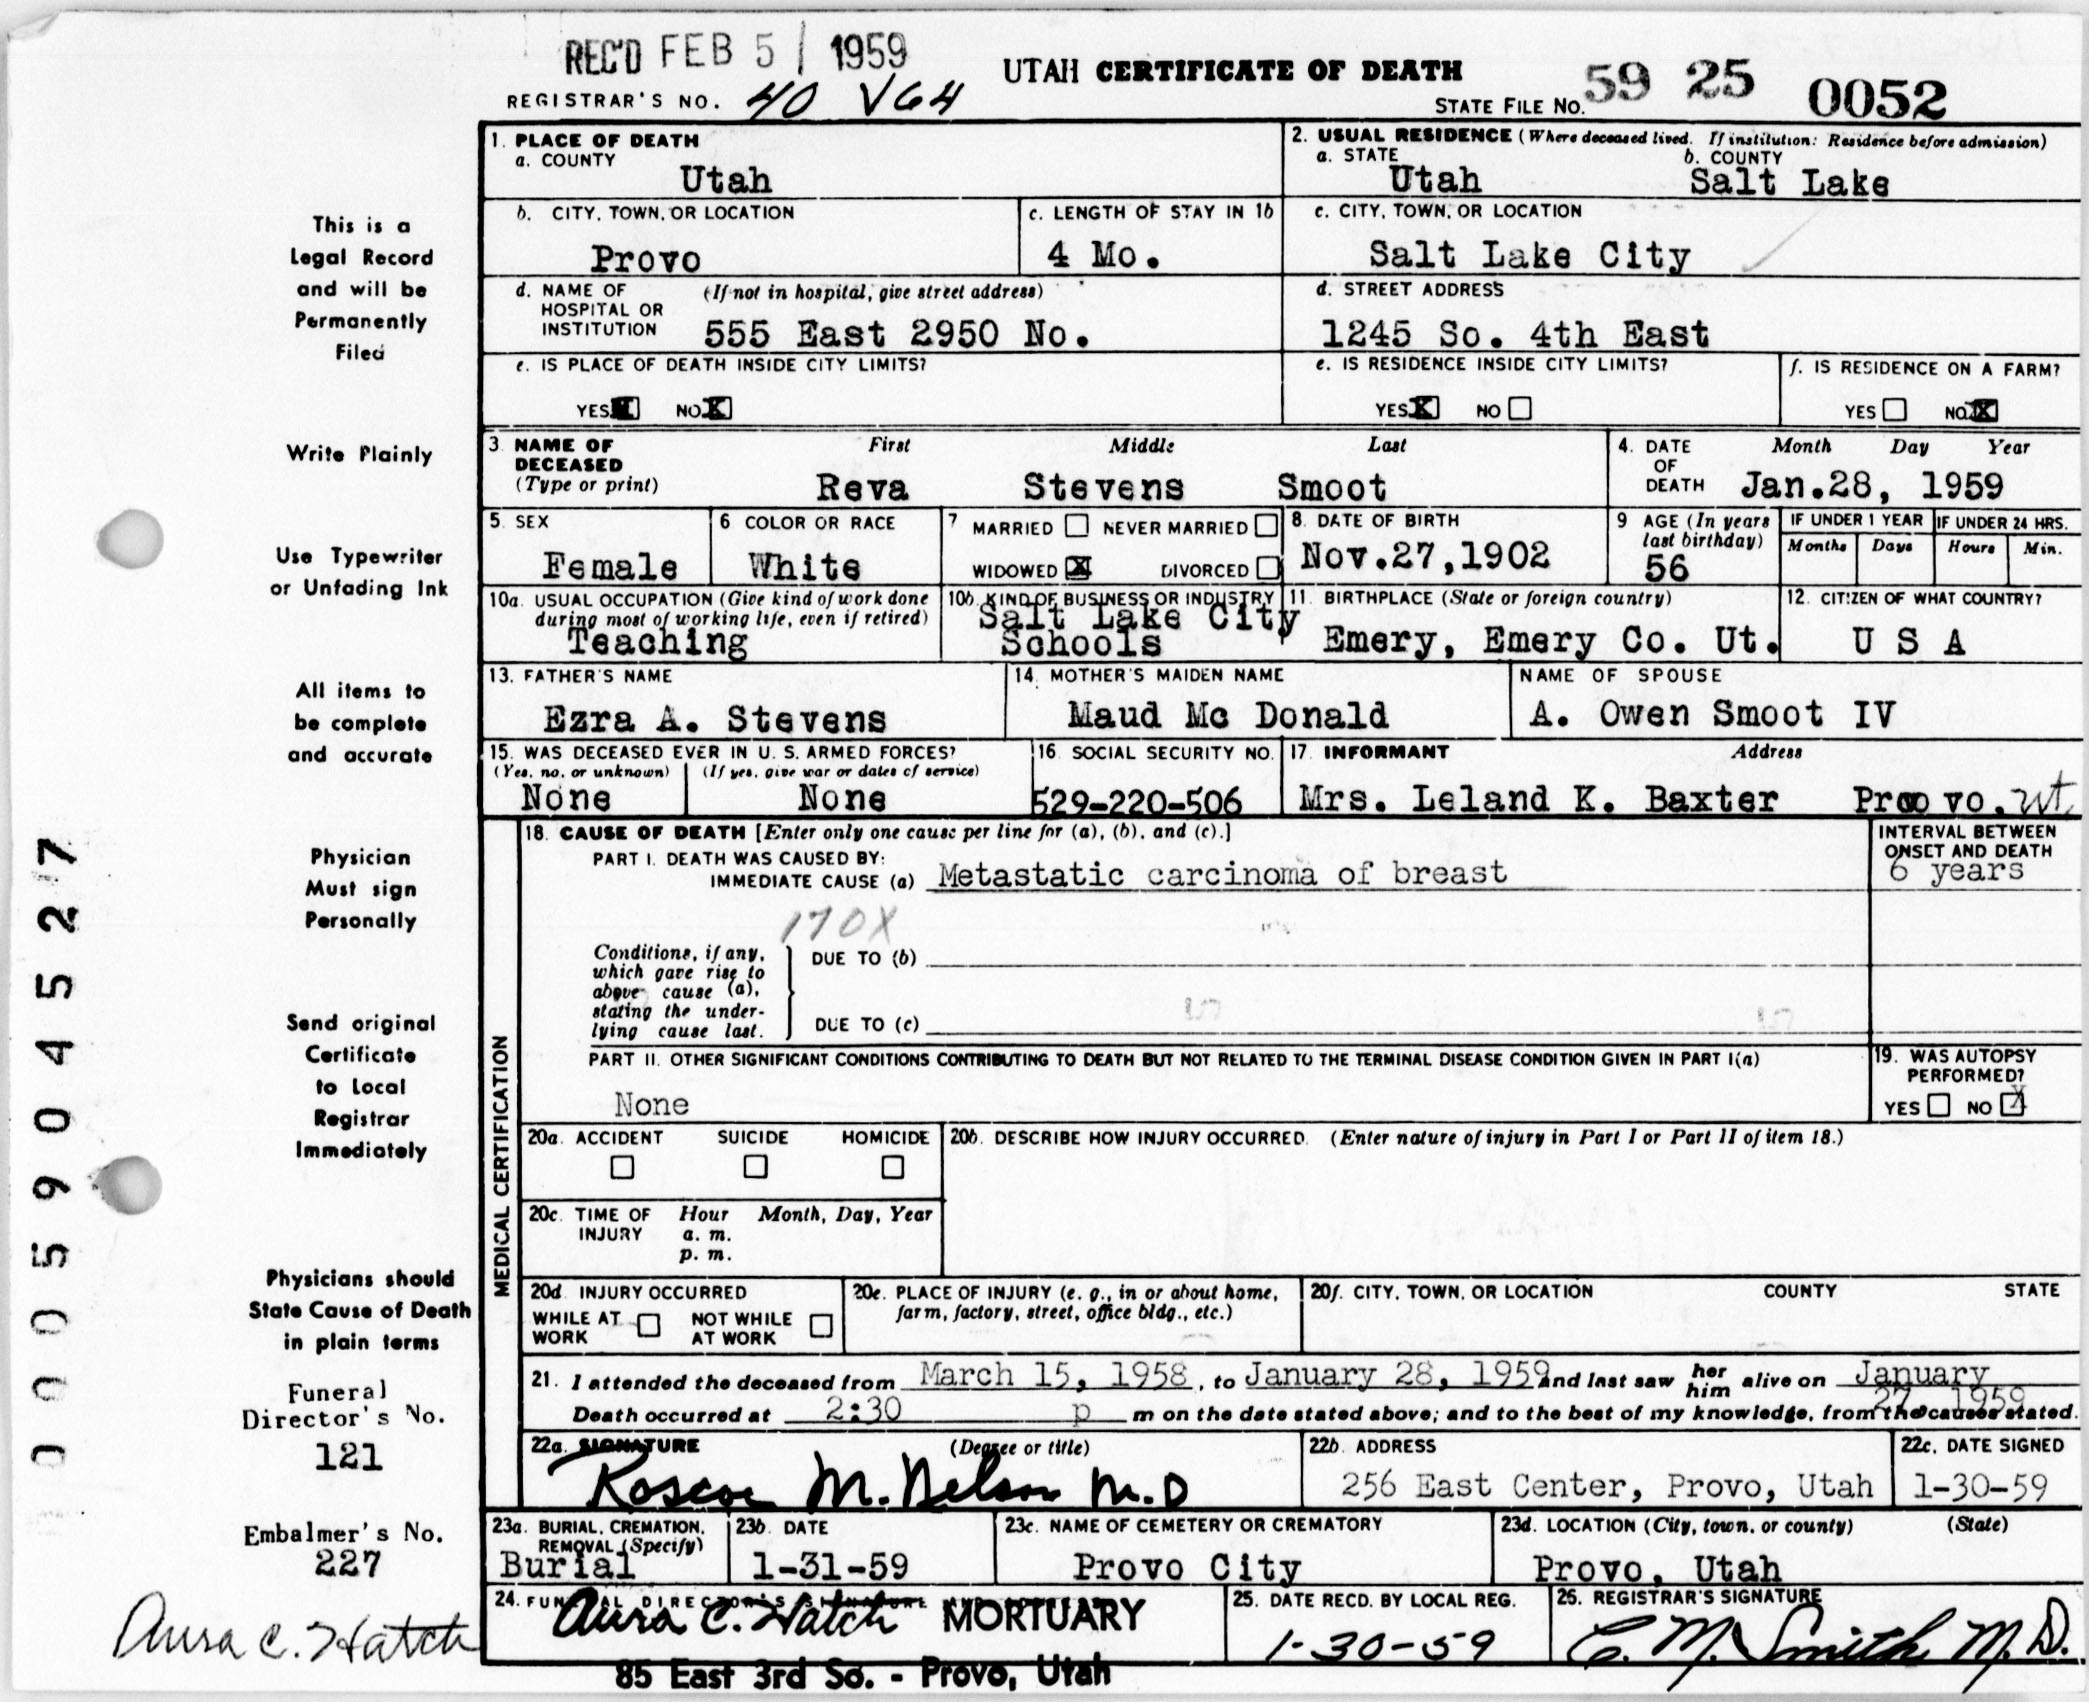 REC'D FEB 5 1959
UTAH CERTIFICATE OF DEATH
REGISTRAR'S NO. 40 V64
STATE FILE NO. 59 25 0052
1. PLACE OF DEATH
a. COUNTY
Utah
2. USUAL RESIDENCE (Where deceased lived. If institution: Residence before admission)
a. STATE b. COUNTY
Utah Salt Lake
b. CITY, TOWN, OR LOCATION
Provo
c. LENGTH OF STAY IN 1b
4 Mo.
c. CITY, TOWN, OR LOCATION
Salt Lake City
d. NAME OF (If not in hospital, give street address)
HOSPITAL OR
INSTITUTION 555 East 2950 No.
d. STREET ADDRESS
1245 So. 4th East
e. IS PLACE OF DEATH INSIDE CITY LIMITS?
YES NO X
e. IS RESIDENCE INSIDE CITY LIMITS?
YES X NO
f. IS RESIDENCE ON A FARM?
YES NO X
3. NAME OF First Middle Last
DECEASED
(Type or print) Reva Stevens Smoot
4. DATE Month Day Year
OF
DEATH Jan.28, 1959
5. SEX
Female
6 COLOR OR RACE
White
7 MARRIED NEVER MARRIED
WIDOWED X DIVORCED
8. DATE OF BIRTH
Nov.27,1902
9 AGE (In years
last birthday)
56
IF UNDER 1 YEAR IF UNDER 24 HRS.
Months Days Hours Min.
10a. USUAL OCCUPATION (Give kind of work done
during most of working life, even if retired)
Teaching
10b. KIND OF BUSINESS OR INDUSTRY
Salt Lake City
Schools
11. BIRTHPLACE (State or foreign country)
Emery, Emery Co. Ut.
12. CITIZEN OF WHAT COUNTRY?
U S A
13. FATHER'S NAME
Ezra A. Stevens
14. MOTHER'S MAIDEN NAME
Maud Mc Donald
NAME OF SPOUSE
A. Owen Smoot IV
15. WAS DECEASED EVER IN U. S. ARMED FORCES?
(Yes, no, or unknown) (If yes, give war or dates of service)
None None
16. SOCIAL SECURITY NO.
529-220-506
17. INFORMANT Address
Mrs. Leland K. Baxter Provo, Ut.
MEDICAL CERTIFICATION
18. CAUSE OF DEATH [Enter only one cause per line for (a), (b), and (c).]
PART I. DEATH WAS CAUSED BY:
IMMEDIATE CAUSE (a) Metastatic carcinoma of breast
INTERVAL BETWEEN
ONSET AND DEATH
6 years
170X
Conditions, if any,
which gave rise to
above cause (a),
stating the under-
lying cause last.
DUE TO (b)
DUE TO (c)
PART II. OTHER SIGNIFICANT CONDITIONS CONTRIBUTING TO DEATH BUT NOT RELATED TO THE TERMINAL DISEASE CONDITION GIVEN IN PART I(a)
None
19. WAS AUTOPSY
PERFORMED?
YES NO X
20a. ACCIDENT SUICIDE HOMICIDE
20b. DESCRIBE HOW INJURY OCCURRED. (Enter nature of injury in Part I or Part II of item 18.)
20c. TIME OF Hour Month, Day, Year
INJURY a. m.
p. m.
20d. INJURY OCCURRED
WHILE AT NOT WHILE
WORK AT WORK
20e. PLACE OF INJURY (e. g., in or about home,
farm, factory, street, office bldg., etc.)
20f. CITY, TOWN, OR LOCATION COUNTY STATE
21. I attended the deceased from March 15, 1958, to January 28, 1959 and last saw her him alive on January
27, 1959
Death occurred at 2:30 p m on the date stated above; and to the best of my knowledge, from the causes stated.
22a. SIGNATURE (Degree or title)
Roscoe M. Nelson M.D
22b. ADDRESS
256 East Center, Provo, Utah
22c. DATE SIGNED
1-30-59
23a. BURIAL, CREMATION,
REMOVAL (Specify)
Burial
23b. DATE
1-31-59
23c. NAME OF CEMETERY OR CREMATORY
Provo City
23d. LOCATION (City, town, or county) (State)
Provo, Utah
24. FUNERAL DIRECTOR'S SIGNATURE
Aura C. Hatch MORTUARY
85 East 3rd So. - Provo, Utah
25. DATE RECD. BY LOCAL REG.
1-30-59
26. REGISTRAR'S SIGNATURE
C. M. Smith M.D.
This is a
Legal Record
and will be
Permanently
Filed
Write Plainly
Use Typewriter
or Unfading Ink
All items to
be complete
and accurate
Physician
Must sign
Personally
Send original
Certificate
to Local
Registrar
Immediately
Physicians should
State Cause of Death
in plain terms
Funeral
Director's No.
121
Embalmer's No.
227
Aura C. Hatch
0005904527